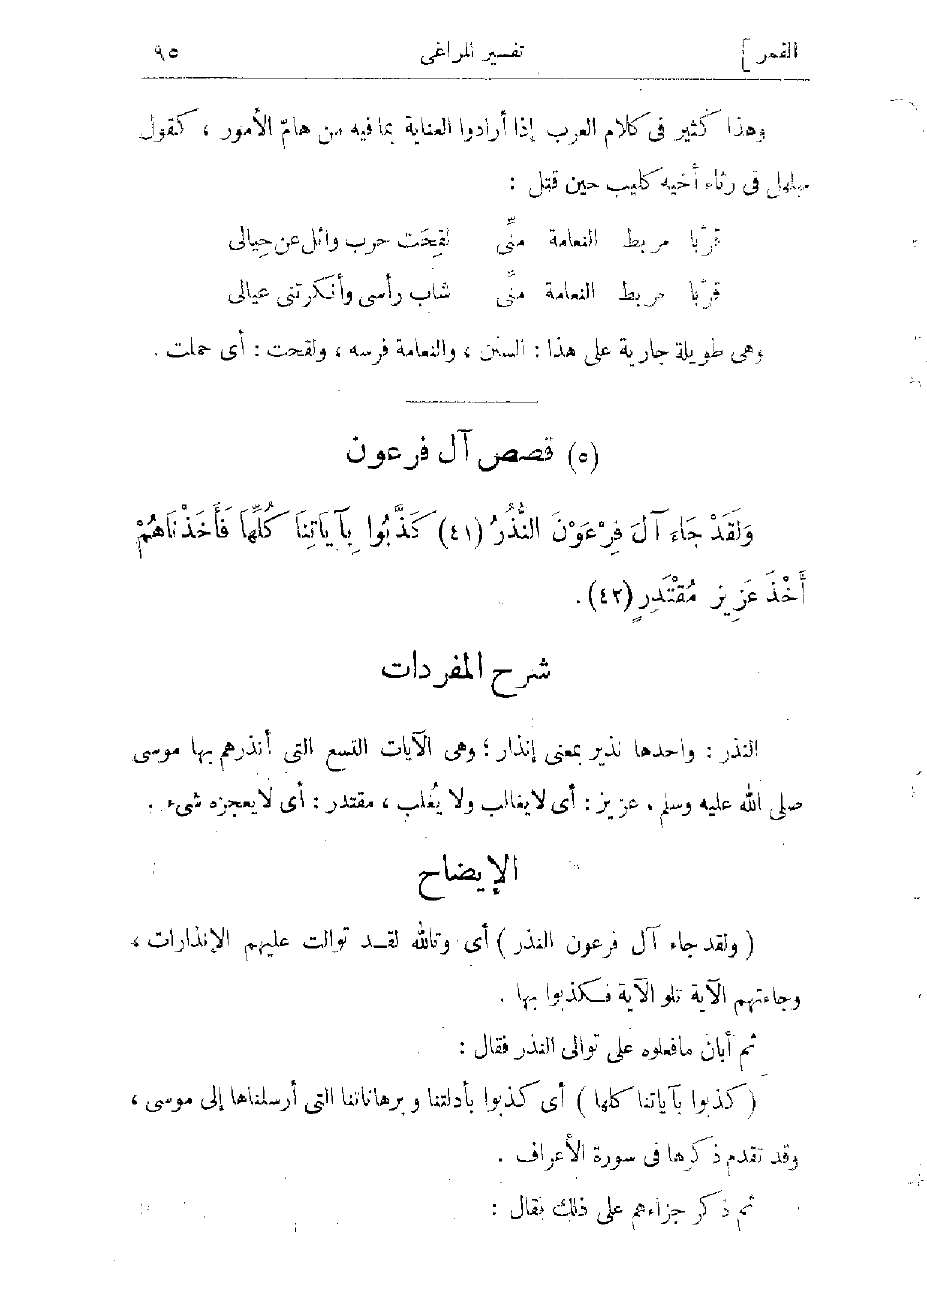 القمر] تفسير المراغى ٩٥
وهذا كثير فى كلام العرب إذا أرادوا العناية بما فيه من هامّ الأمور ، كقول
مهلهل فى رثاء أخيه كليب حين قتل :
قرّبا مربط النعامة منّى لقِحَت حرب وائل عن حِيالى
قرّبا مربط النعامة منّى شاب رأسى وأنكرتنى عيالى
وهى طويلة جارية على هذا : السنن ، والنعامة فرسه ، ولقحت : أى حملت .
(٥) قصص آل فرعون
وَلَقَدْ جَاءَ آلَ فِرْعَوْنَ النُّذُرُ (٤١) كَذَّبُوا بِآيَاتِنَا كُلِّهَا فَأَخَذْنَاهُمْ
أَخْذَ عَزِيزٍ مُقْتَدِرٍ (٤٢) .
شرح المفردات
النذر : واحدها نذير بمعنى إنذار ؛ وهى الآيات التسع التى أنذرهم بها موسى
صلى الله عليه وسلم . عزيز : أى لا يغالب ولا يُغلب ، مقتدر : أى لا يعجزه شىء .
الإيضاح
( ولقد جاء آل فرعون النذر ) أى وتالله لقد توالت عليهم الإنذارات ،
وجاءتهم الآية تلو الآية فكذبوا بها .
ثم أبان مافعلوه على توالى النذر فقال :
( كذبوا بآياتنا كلها ) أى كذبوا بأدلتنا وبرهاناتنا التى أرسلناها إلى موسى ،
وقد تقدم ذكرها فى سورة الأعراف .
ثم ذكر جزاءهم على ذلك فقال :